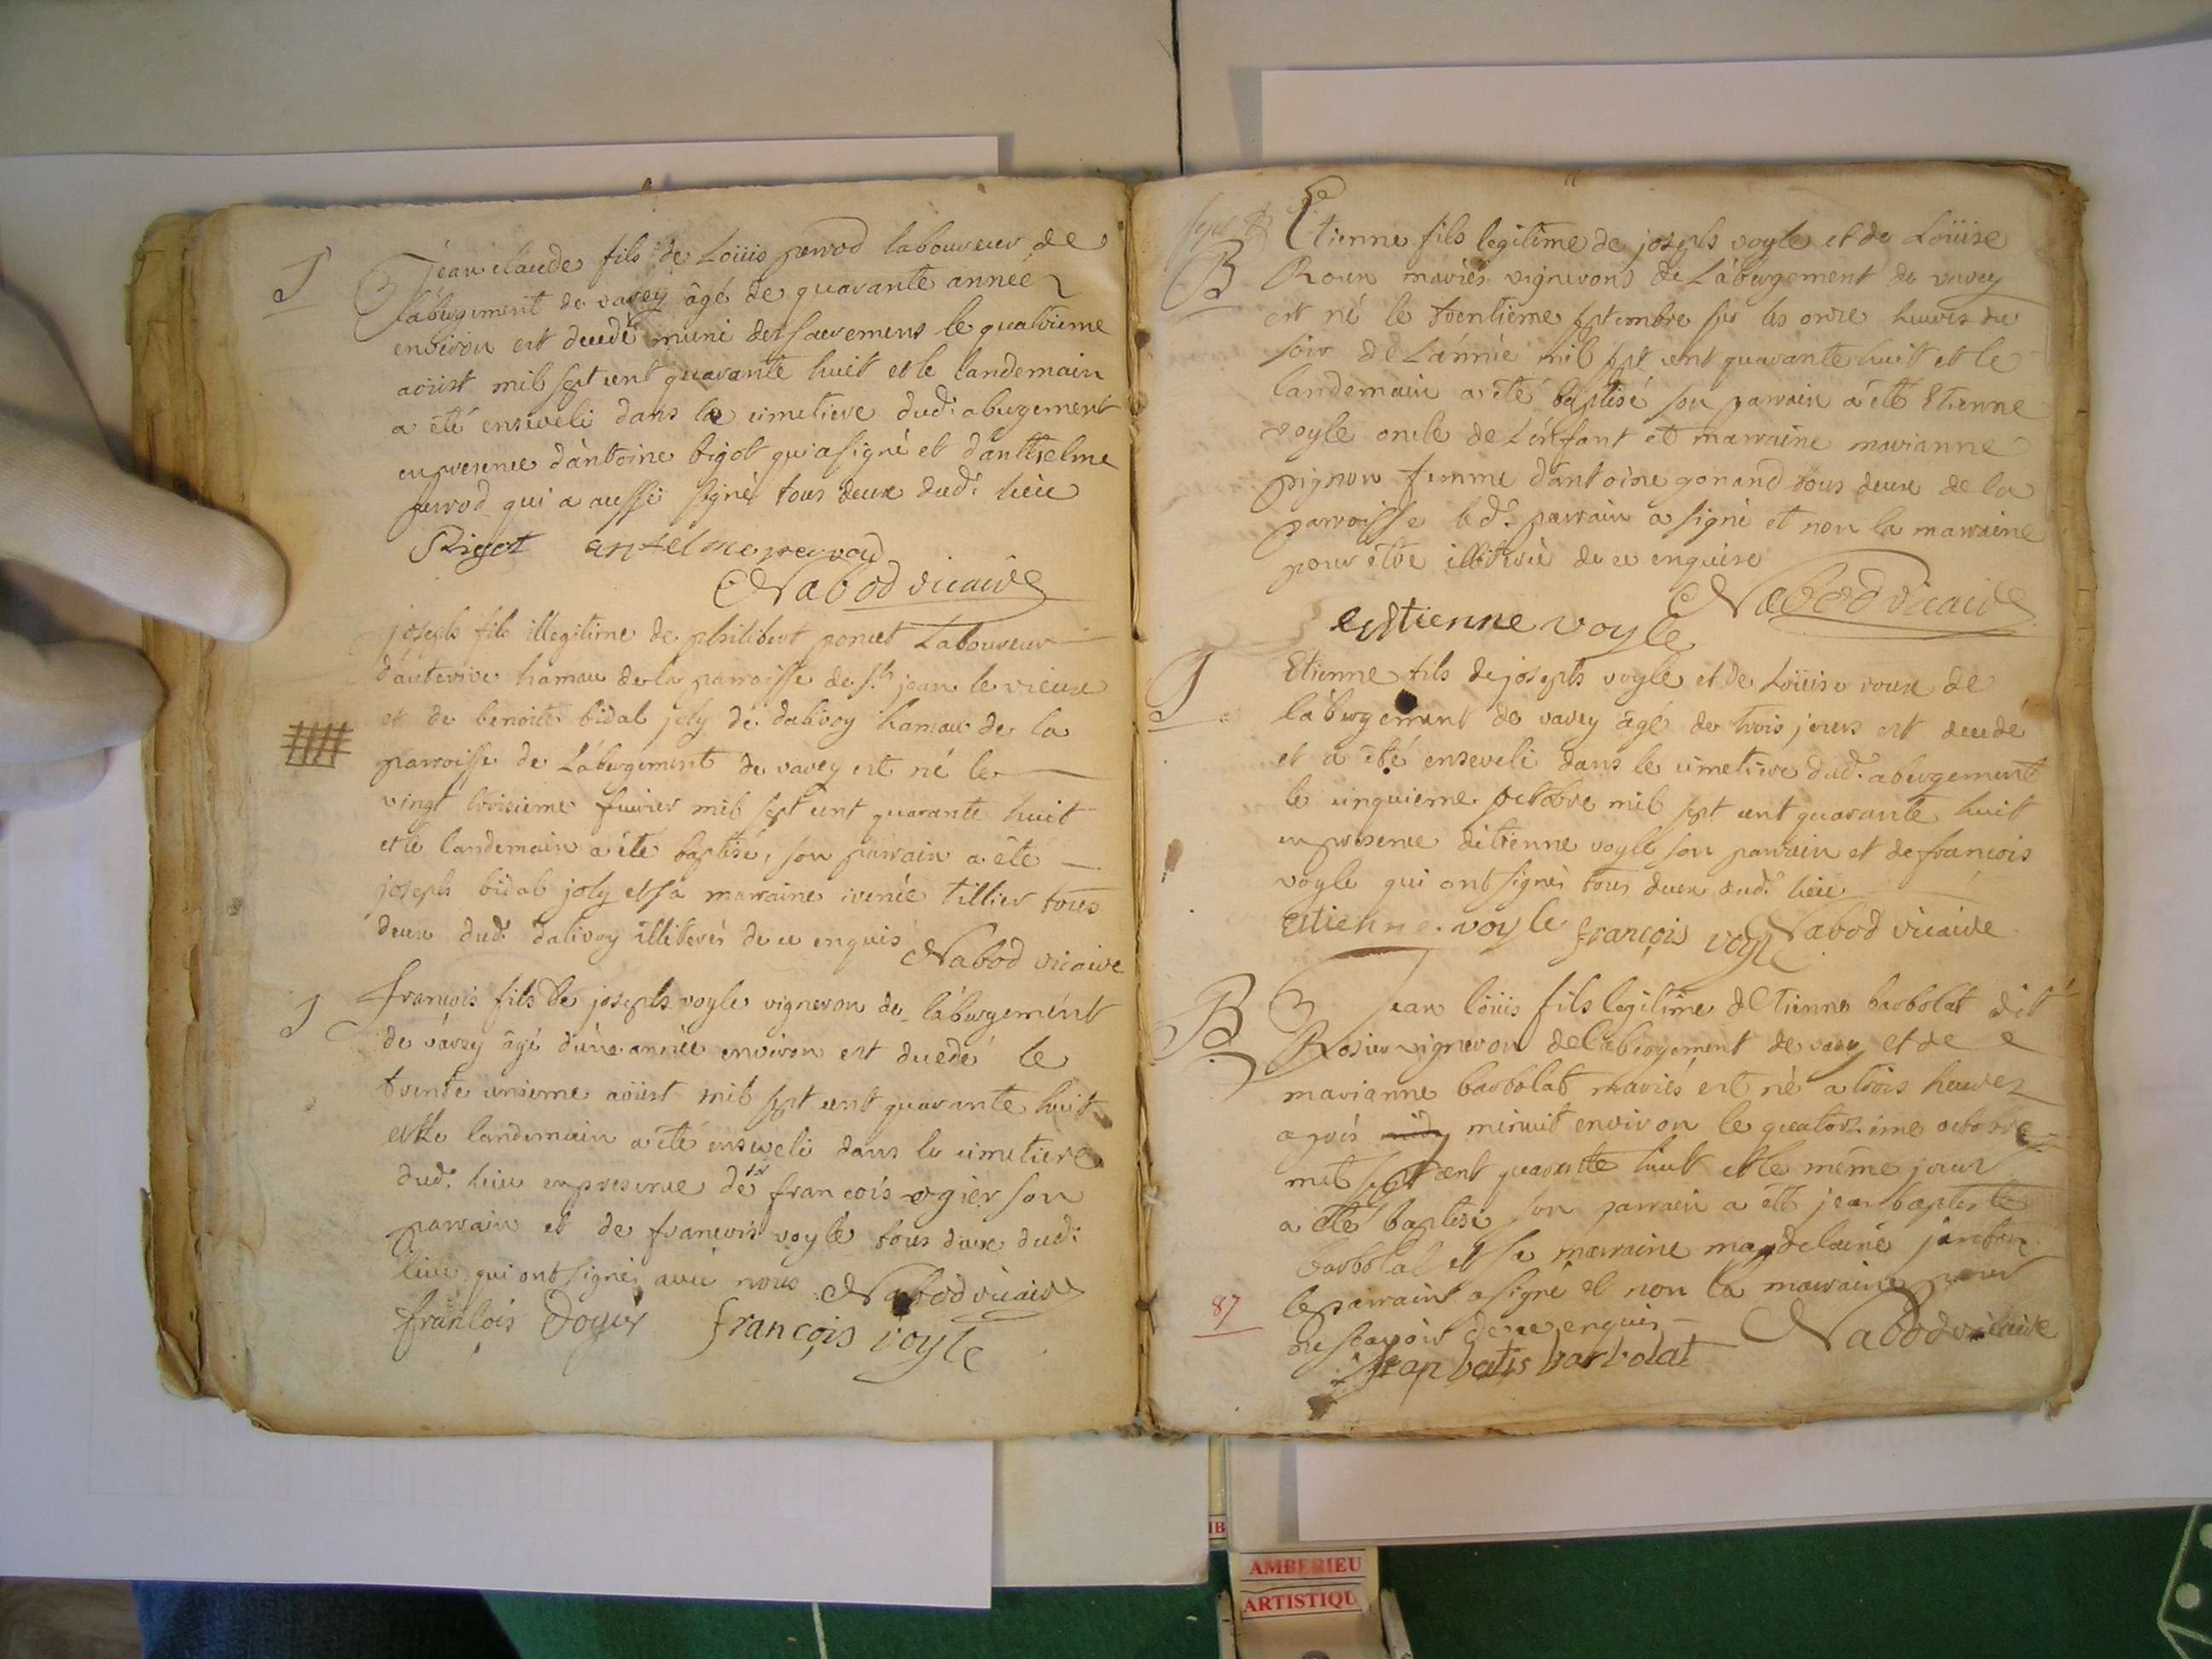 S
jean claude fils de Loüis perrod laboureur de
l'abergement de varey âgé de quarante années
environ est decedé muni des sacremens le quatrieme
aoust mil sept cent quarante huit et le landemain
a été enseveli dans le cimetiere dud: abergement
en presence d'antoine bigot qui a signé et d'anthelme
perrod qui a aussi signé tous deux dud: lieu
Bigot antelme perrod
Nabod vicaire
joseph fils illegitime de philibert poncet Laboureur
d'hauterive hamau de la parroisse de st jean le vieux
et de benoite bidal joly de dalivoy hamau de la
parroisse de L'abergement de varey est né le
vingt troisieme fevrier mil sept cent quarante huit
et le landemain a été baptisé, son parrain a été
joseph bidal joly et sa marraine irenée tillier tous
deux dud: dalivoy illiterés de ce enquis Nabod vicaire
S
françois fils de joseph voyle vigneron de l'abergement
de varey âgé d'une année environ est decedé le
trente unieme aoust mil sept cent quarante huit
et le landemain a été enseveli dans le cimetiere
dud: lieu en presence de sr françois ogier son
parrain et de françois voyle tous deux dud:
lieu qui ont signé avec nous Nabod vicaire
françois françois voyle
B
Etienne fils legitime de joseph voyle et de Loüise
Roux mariés vignerons de L'abergement de varey
est né le trentieme septembre sur les onze heures du
soir de L'année mil sept cent quarante huit et le
landemain a été baptisé son parrain a été Etienne
voyle oncle de L'enfant et marraine marianne
pignon femme d'antoine gonand tous deux de la
parroisse led: parrain a signé et non la marraine
pour être illiterée de ce enquise
Nabod vicaire
estienne voyle
S
Etienne fils de joseph voyle et de Loüise roux de
l'abergement de varey âgé de trois jours est decedé
et a été enseveli dans le cimetiere dud: abergement
le cinquieme octobre mil sept cent quarante huit
en presence d'etienne voyle son parrain et de françois
voyle qui ont signés tous deux dud: lieu
estienne voyle françois voyle Nabod vicaire
B
jean loüis fils legitime d'Etienne barbolat dit
Rosier vigneron de l'abergement de varey et de
marianne barbolat mariés est né a trois heures
aprés minuit environ le quatorzieme octobre
mil sept cent quarante huit et le même jour
a été baptisé son parrain a été jean baptiste
barbolat et sa marraine magdelaine janton
le parrain a signé et non la marraine pour
ne scavoir de ce enquis Nabod vicaire
jean batis barbolat
87
AMBERIEU
ARTISTIQU